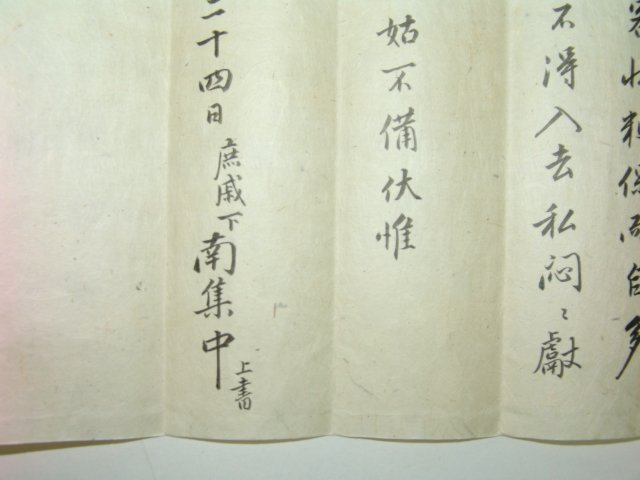 不得入去私悶〻獻
姑不備伏惟
二十四日 庶戚下 南集中 上書